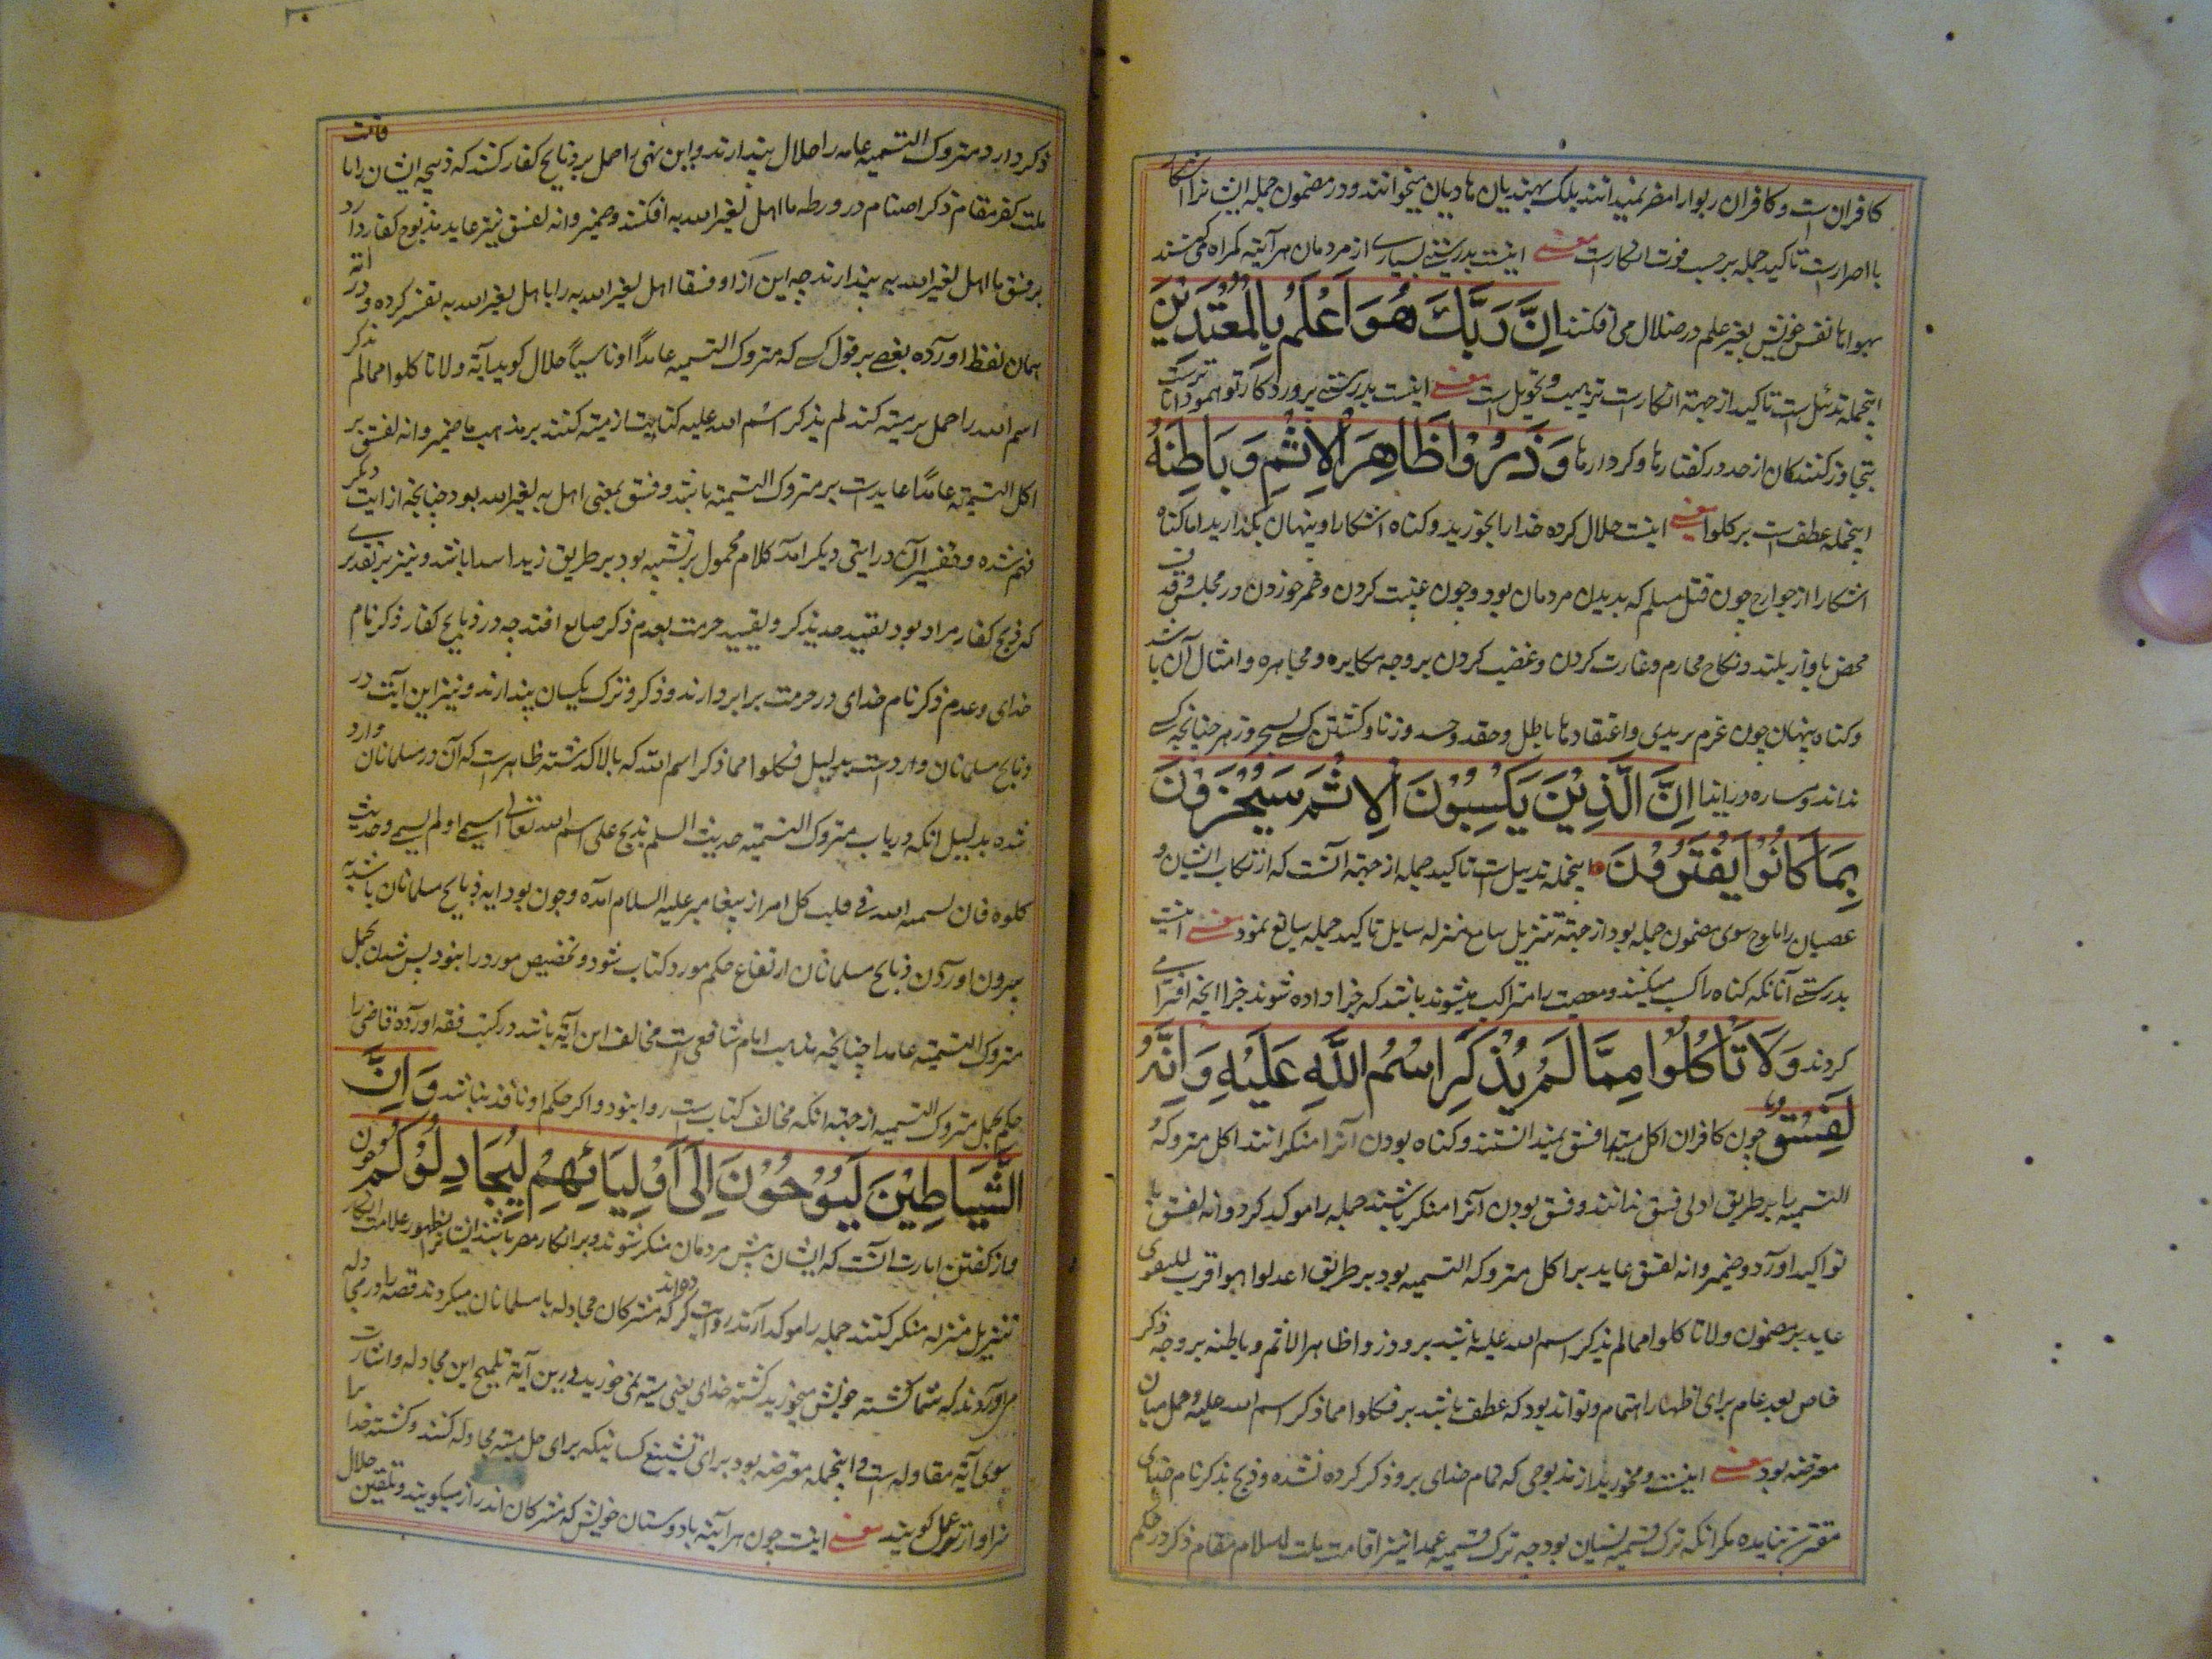 کافران است و کافران را مضر نمیدانند بلکه مهتدیان هادیان میخوانند و در مضمون جمله ایشانرا انکار
با اصرار است تاکید جمله بر حسب قوت انکار است معنے اینست بدرستے بسیارے از مردمان هر آینه کمراه می کنند
بهواها نفس خویش بغیر علم در ضلال می افکنند اِنَّ رَبَّكَ هُوَ اَعْلَمُ بِالْمُعْتَدِيْنَ
اینجمله تذییل است تاکید از جهة انکار است ترهیب و تخویل است معنے اینست بدرستے پروردکار تو همو داناترست
بتجاوز کنندکان از حد در کفتارها و کردارها وَ ذَرُوْا ظَاهِرَ الْاِثْمِ وَ بَاطِنَهٗ
اینجمله عطف است بر کلوا معنے اینست حلال کرده خدا را بخورید و کناه اشکارا و پنهان بکذارید اما کناه
اشکارا از جوارح چون قتل مسلم که بدیدن مردمان بود و چون غیبت کردن و خمر خوردن در مجلس و قذف
محض باواز بلند و نکاح محارم و غارت کردن و غضب کردن بر وجه مکابره و مجاهره و امثال آن باشد
و کناه پنهان چون عزم بر بدی و اعتقادها باطل و حقد و حسد و زنا و کشتن کسے بسحر و زهر چنانچه کسے
نداند و مساره در ایذا اِنَّ الَّذِيْنَ يَكْسِبُوْنَ الْاِثْمَ سَيُجْزَوْنَ
بِمَا كَانُوْا يَقْتَرِفُوْنَ اینجمله تذییل است تاکید جمله از جهة آنست که ارتکاب ایشان و
عصیان را ملوح سوی مضمون جمله بود از جهة تنزیل سامع منزله سایل تاکید جمله سایغ نمود معنے اینست
بدرستے آنانکه کناه را کسب میکنند و معصیت را مرتکب میشوند باشد که جزا داده شوند جزا انچه افترامی
کردند وَ لَا تَاْكُلُوْا مِمَّا لَمْ يُذْكَرِ اسْمُ اللّٰهِ عَلَيْهِ وَ اِنَّهٗ
لَفِسْقٌ چون کافران اکل میتها فسق نمیدانستند و کناه بودن آنرا منکرانند اکل متروکه
التسمیه را بر طریق اولی فسق ندانند و فسق بودن آنرا منکر باشند جمله را موکد کرد و انه لفسق با
تواکید آورد و ضمیر و انه لفسق عاید بر اکل متروکه التسمیه بود بر طریق اعدلوا هو اقرب للتقوی
عاید بر مضمون و لا تاکلوا مما لم یذکر اسم الله علیه باشد بر و ذروا ظاهر الاثم و باطنه بر وجه ذکر
خاص بعد عام برای اظهار اهتمام و تواند بود که عطف باشد بر فکلوا مما ذکر اسم الله علیه و جمل میان
معترضه بود معنے اینست و مخورید از مذبوحی که نام خدای برو ذکر کرده نشده و ذبح بذکر نام خدای
مقترن نیامده مکر انکه ترک تسمیه نسیان بود چه ترک تسمیه عمدا نیز اقامت ملت اسلام مقام ذکر در حکم
ذکر دارد متروک التسمیه عامه را حلال پندارند و این نهی را حمل بر ذبایح کفار کنند که ذبیحه ایشان را با اقامت
ملت کفر مقام ذکر اصنام در ورطه ما اهل لغیر الله به افکنند و ضمیر و انه لفسق نیز عاید مذبوح کفار دارد
بر فسق ما اهل لغیر الله به پندارند چه این آز او فسقا اهل لغیر الله به را با اهل لغیر الله به تفسیر کرده و در انه
همان لفظ اورده بعضے بر قول کسے که متروک التسمیه عامداً او ناسیاً حلال کوید آیة و لا تاکلوا مما لم یذکر
اسم الله را حمل بر میته کند لم یذکر اسم الله علیه کنایت از میته کنند بر مذهب ما ضمیر و انه لفسق بر
اکل التسمیة عامداً عاید است بر متروک التسمیة باشد و فسق بمعنی اهل به لغیر الله بود چنانچه از ایت دیکر
فهم شده و تفسیر آن در ایتی دیکر آمد کلام محمول بر تشبیه بود بر طریق زید اسد باشد و نیز بر تقدیرے
که ذبح کفار مراد بود تقیید حد یذکر و تقیید حرمت بعدم ذکر ضایع افتد چه در ذبایح کفار ذکر نام
خدای و عدم ذکر نام خدای در حرمت برابر دارند و ذکر و ترک یکسان پندارند و نیز این آیت در
ذبایح مسلمانان وارد است بدلیل فکلوا مما ذکر اسم الله که بالا کذشته ظاهر است که آن در مسلمانان وارد
شده بدلیل انکه در باب متروک التسمیه حدیث المسلم یذبح علی اسم الله تعالے سمے او لم یسمے و حدیث
کلوه فان تسمیه الله فی قلب کل امر از پیغامبر علیه السلام آمده و چون بود ایه ذبایح مسلمانان باشد به
بیرون اوردن ذبایح مسلمانان ارتفاع حکم مورد کتاب شود و تخصیص مورد روا نبود پس شدن بحمل
متروک التسمیة عامدا چنانچه مذهب امام شافعی است مخالف این آیة باشد در کتب فقه اورده قاضی را
حکم بحمل متروک التسمیه از جهة انکه مخالف کتاب است روا نبود و اکر حکم او نافذ نباشد وَ اِنَّ
الشَّيَاطِيْنَ لَيُوْحُوْنَ اِلٰى اَوْلِيَائِهِمْ لِيُجَادِلُوْكُمْ چون
تنزیل منزله منکر کنند جمله را موکد آرند روایت کرده اند که مشرکان مجادله با مسلمانان میکردند قصه را در مجادله
می آوردند که شما کشته خویش میخورید کشته خدای یعنی میته نمی خورید درین آیة تلمیح این مجادله و اشارت
سوی آیة مقاوله است و اینجمله معترضه بود برای تشنیع کسانیکه برای حل میته مجادله کنند و کشته خدا را
معنے اینست چون هر آینه با دوستان خویش که مشرکان اندراز میکویند و تلقین